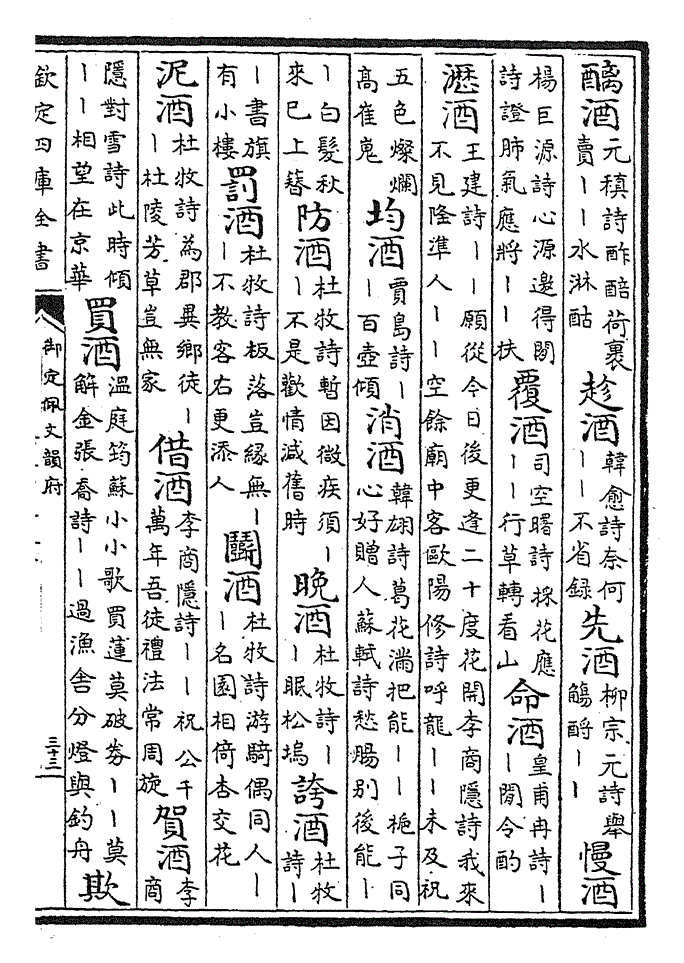 醨酒元稹詩酢醅荷裹賣丨丨水淋酤趁酒韓愈詩奈何丨丨不省録先酒柳宗元詩舉觴酹丨丨慢酒
楊巨源詩心源邀得閒詩證肺氣應將丨丨扶覆酒司空曙詩採花應丨丨行草轉看山命酒皇甫冉詩丨丨閒令酌
瀝酒王建詩丨丨願從今日後更逢二十度花開李商隱詩我來不見隆準人丨丨空餘廟中客歐陽修詩呼龍丨丨未及祝
五色燦爛高崔嵬均酒賈島詩丨丨百壺傾消酒韓翃詩葛花滿把能丨丨梔子同心好贈人蘇軾詩愁腸别後能丨
丨白髮秋來已上簪防酒杜牧詩暫因微疾須丨丨不是歡情減舊時晚酒杜牧詩丨丨眠松塢誇酒杜牧詩丨
丨書旗有小樓罰酒杜牧詩板落豈緣無丨丨不教客右更添人鬭酒杜牧詩游騎偶同人丨丨名園相倚杏交花
泥酒杜牧詩為郡異鄉徒丨丨杜陵芳草豈無家借酒李商隱詩丨丨祝公千萬年吾徒禮法常周旋賀酒李商
隱對雪詩此時傾丨丨相望在京華買酒溫庭筠蘇小小歌買蓮莫破券丨丨莫解金張喬詩丨丨過漁舍分燈與釣舟欺
欽定四庫全書
御定佩文韻府
三十三